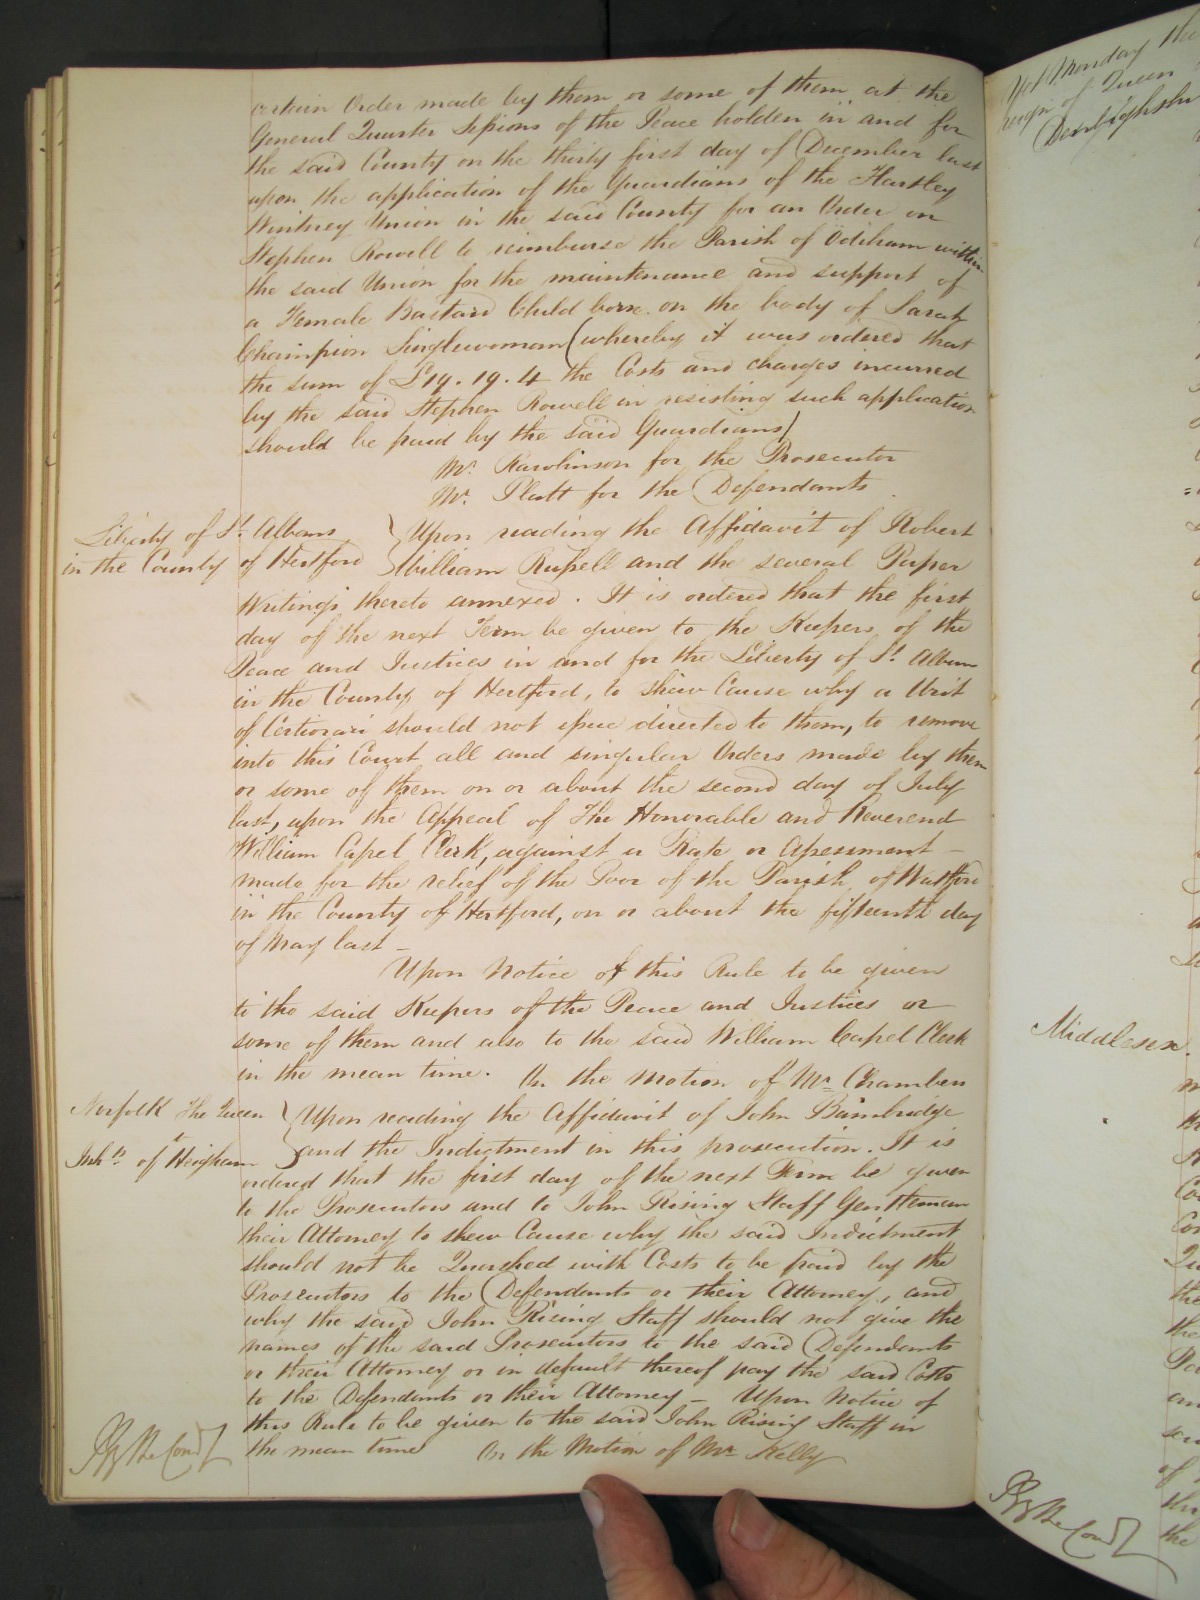 certain Order made by them or some of them at the
General Quarter Sessions of the Peace holden in and for
the said County on the thirty first day of December last
upon the application of the Guardians of the Hartley
Wintney Union in the said County for an Order on
Stephen Rowell to reimburse the Parish of Odiham within
the said Union for the maintenance and support of
a Female Bastard Child born on the body of Sarah
Champion Singlewoman (whereby it was ordered that
the sum of £19.19.4 the Costs and charges incurred
by the said Stephen Rowell in resisting such application
should be paid by the said Guardians)
Mr. Rawlinson for the Prosecutor
Mr. Platt for the Defendants
Liberty of St. Albans
in the County of Hertford
Upon reading the Affidavit of Robert
William Russell and the several Paper
Writings thereto annexed. It is ordered that the first
day of the next Term be given to the Keepers of the
Peace and Justices in and for the Liberty of St. Alban
in the County of Hertford, to shew Cause why a Writ
of Certiorari should not issue directed to them, to remove
into this Court all and singular Orders made by them
or some of them on or about the second day of July
last, upon the Appeal of The Honorable and Reverend
William Capel Clerk, against a Rate or Assessment -
made for the relief of the Poor of the Parish of Watford
in the County of Hertford, on or about the fifteenth day
of May last -
Upon Notice of this Rule to be given
to the said Keepers of the Peace and Justices or
some of them and also to the said William Capel Clerk
in the mean time. On the Motion of Mr. Chambers
Norfolk The Queen
agt
Inhts. of Heigham
Upon reading the Affidavit of John Bambridge
and the Indictment in this prosecution. It is
ordered that the first day of the next Term be given
to the Prosecutors and to John Rising Staff Gentleman
their Attorney to shew Cause why the said Indictment
should not be Quashed with Costs to be paid by the
Prosecutors to the Defendants or their Attorney, and
why the said John Rising Staff should not give the
names of the said Prosecutors to the said Defendants
or their Attorney or in default thereof pay the said Costs
to the Defendants or their Attorney - Upon Notice of
this Rule to be given to the said John Rising Staff in
the mean time On the Motion of Mr. Kelly
By the Court
Monday
reign of Queen
Middlesex.
By the Court